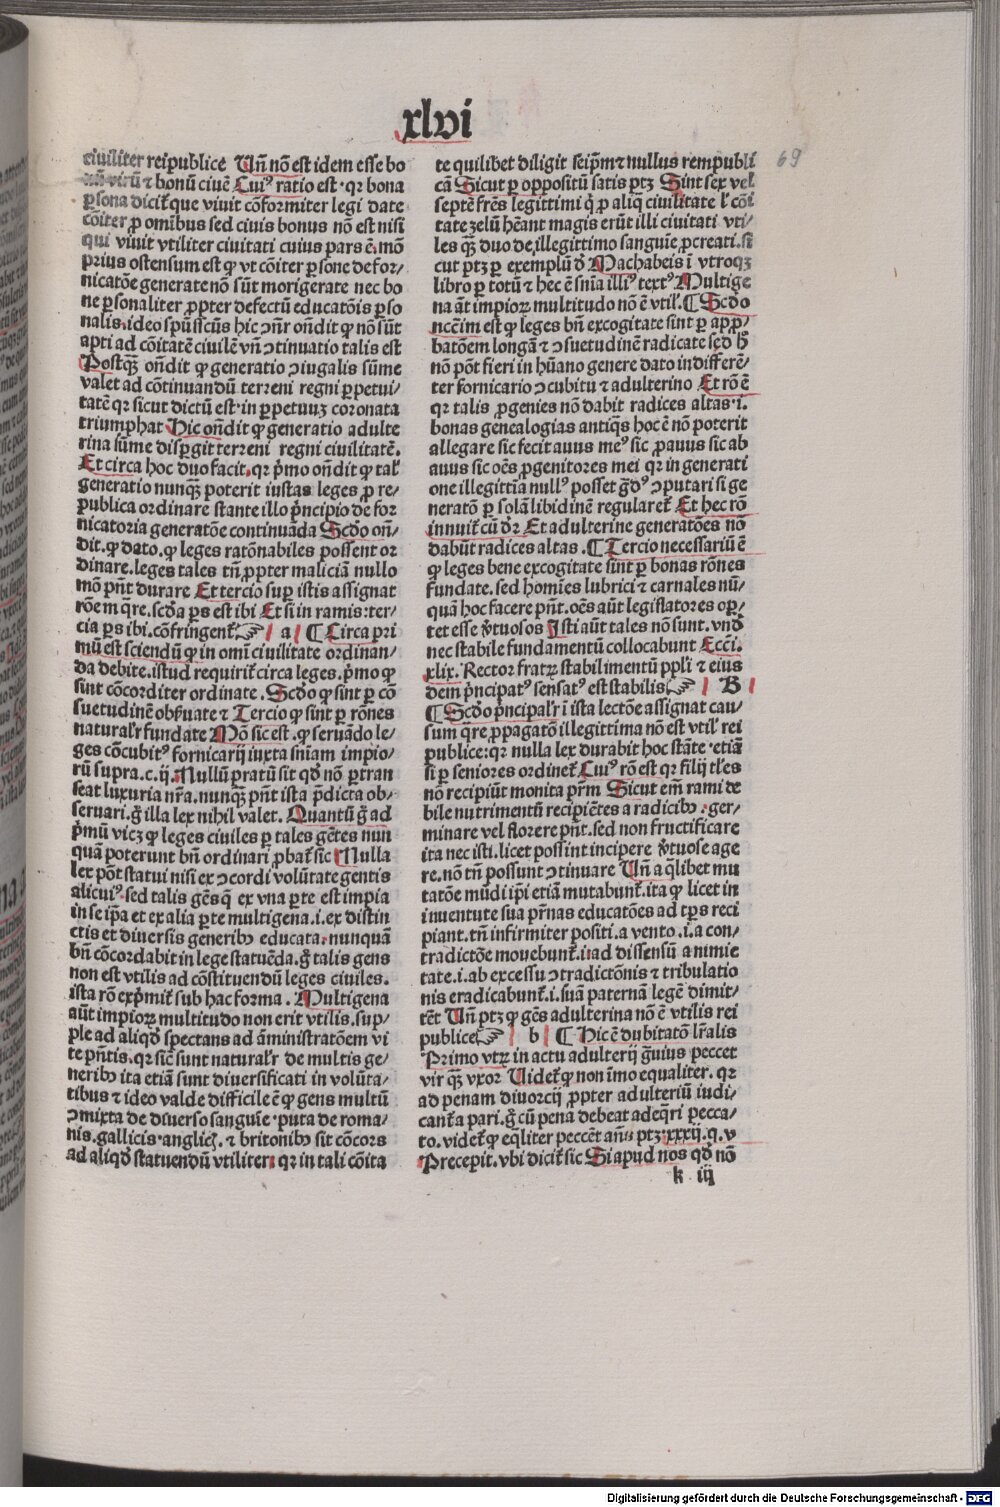 xlvi
69
ciuiliter reipublice Uñ nõ est idem esse bo
virũ ⁊ bonũ ciuẽ Cuiꝰ ratio est · qꝛ bona
ꝑsona dicit̃ que viuit cõformiter legi date
cõiter ꝓ omĩbus sed ciuis bonus nõ est nisi
qui viuit vtiliter ciuitati cuius pars ẽ. mõ
prius ostensum est ꝙ vt cõiter ꝑsone defor⸗
nicatõe generate nõ sũt morigerate nec bo
ne ꝑsonaliter ꝓpter defectũ educatõis ꝑso
nalis. ideo spũssctũs hic ↄñr oñdit ꝙ nõ sũt
apti ad cõitatẽ ciuilẽ vñ ↄtinuatio talis est
Postqꝫ̃ oñdit ꝙ generatio ↄiugalis sũme
valet ad cõtinuandũ terreni regni ꝑpetui⸗
tatẽ qꝛ sicut dictũ est · in ꝑpetuuꝫ coronata
triumphat Hic oñdit ꝙ generatio adulte
rina sũme disꝑgit terreni regni ciuilitatẽ.
Et circa hoc duo facit. qꝛ p̃mo oñdit ꝙ tal̃
generatio nunqꝫ̃ poterit iustas leges ꝓ re⸗
publica ordinare stante illo p̃ncipio de for
nicatoria generatõe continuãda Scd̃o oñ⸗
dit. ꝙ dato. ꝙ leges ratõnabiles possent or
dinare. leges tales tñ ꝓpter maliciã nullo
mõ pñt durare Et tercio suꝑ istis assignat
rõem q̃re. scd̃a ꝑs est ibi Et si in ramis : ter⸗
cia ꝑs ibi. cõfringent̃ ☞ | a | ¶ Circa pri
mũ est sciendũ ꝙ in om̃i ciuilitate ordinan⸗
da debite. istud requirit̃ circa leges. p̃mo ꝙ
sint cõcorditer ordinate . Scd̃o ꝙ sint ꝑ cõ
suetudinẽ obſuate ⁊ Tercio ꝙ sint ꝑ rõnes
natural̓r fundate Mõ sic est . ꝙ seruãdo le⸗
ges cõcubitꝰ fornicarij iuxta sniam impio⸗
rũ supra. c. ij. Nullũ pratũ sit qd̓ nõ ꝑtran
seat luxuria nr̃a. nunqꝫ̃ pñt ista p̃dicta ob⸗
seruari. g̃ illa lex nihil valet. Quantũ g̃ ad
p̃mũ vicꝫ ꝙ leges ciuiles ꝑ tales gẽtes nun
quã poterunt bñ ordinari ꝓbat̃ sic Nulla
lex põt statui nisi ex ↄcordi volũtate gentis
alicuiꝰ. sed talis gẽs q̃ ex vna ꝑte est impia
in se ip̃a et ex alia ꝑte multigena. i. ex distin
ctis et diuersis generibꝰ educata. nunquã
bñ cõcordabit in lege statuẽda. g̃ talis gens
non est vtilis ad cõstituendũ leges ciuiles.
ista rõ exp̃mit̃ sub hac forma . Multigena
aũt impioꝝ multitudo non erit vtilis. sup⸗
ple ad aliqd̓ spectans ad ãministratõem vi
te pñtis. qꝛ sic̃ sunt natural̓r de multis ge⸗
neribꝰ ita etiã sunt diuersificati in volũta⸗
tibus ⁊ ideo valde difficile ẽ ꝙ gens multũ
ↄmixta de diuerso sanguĩe · puta de roma⸗
nis. gallicis · anglicꝫ. ⁊ britonibꝰ sit cõcors
ad aliqd̓ statuendũ vtiliter. qꝛ in tali cõita
te quilibet diligit seip̃m ⁊ nullus rempubli
cã Sicut ꝑ oppositũ satis ptꝫ Sint sex vel
septẽ fr̃es legittimi q̃ ꝓ aliq̃ ciuilitate l̓ cõi
tate zelũ hẽant magis erũt illi ciuitati vti⸗
les qꝫ̃ duo de illegittimo sanguĩe ꝓcreati. si
cut ptꝫ ꝑ exemplũ d̓ Machabeis ĩ vtroqꝫ
libro ꝑ totũ ⁊ hec ẽ snia illiꝰ textꝰ Multige
na ãt impioꝝ multitudo nõ ẽ vtil̓. ¶ Scd̃o
nccẽim est ꝙ leges bñ excogitate sint ꝑ apꝓ⸗
batõem longã ⁊ ↄsuetudinẽ radicate sed h̓
nõ põt fieri in hũano genere dato indifferẽ⸗
ter fornicario ↄcubitu ⁊ adulterino Et rõ ẽ
qꝛ talis ꝓgenies nõ dabit radices altas · i.
bonas genealogias antiq̃s hoc ẽ nõ poterit
allegare sic fecit auus meꝰ sic ꝓauus sic ab
auus sic oẽs ꝓgenitores mei qꝛ in generati
one illegittĩa nullꝰ posset g̃dꝰ ↄputari si ge
neratõ ꝑ solã libidinẽ regularet̃ Et hec rõ
innuit̃ cũ d̓r Et adulterine generatões nõ
dabũt radices altas . ¶ Tercio necessariũ ẽ
ꝙ leges bene excogitate sint ꝑ bonas rõnes
fundate. sed homĩes lubrici ⁊ carnales nũ⸗
quã hoc facere pñt. oẽs aũt legislatores opꝫ⸗
tet esse ṽtuosos Isti aũt tales nõ sunt. vnd̓
nec stabile fundamentũ collocabunt Ecci.
xlix. Rector fratꝝ stabilimentũ ppl̓i ⁊ eius
dem p̃ncipatꝰ sensatꝰ est stabilis ☞ | B |
¶ Scd̃o p̃ncipal̓r ĩ ista lectõe assignat cau⸗
sum q̃re ꝓpagatõ illegittima nõ est vtil̓ rei
publice: qꝛ nulla lex durabit hoc stãte · etiã
si ꝑ seniores ordinet̃. Cuiꝰ rõ est qꝛ filij tl̃es
nõ recipiũt monita pr̃m Sicut em̃ rami de
bile nutrimentũ recipiẽtes a radicibꝰ : ger⸗
minare vel florere pñt. sed non fructificare
ita nec isti. licet possint incipere ṽtuose age
re. nõ tñ possunt ↄtinuare Uñ a q̃libet mu
tatõe mũdi ip̃i etiã mutabunt̃. ita ꝙ licet in
iuuentute sua pr̃nas educatões ad tp̃s reci
piant. tñ infirmiter positi. a vento. i. a con⸗
tradictõe mouebunt̃. ii ad dissensũ a nimie
tate. i. ab excessu ↄtradictõnis ⁊ tribulatio
nis eradicabunt̃. i. suã paternã legẽ dimit⸗
tẽt Uñ ptꝫ ꝙ gẽs adulterina nõ ẽ vtilis rei
publice ☞ | b | ¶ Hic ẽ dubitatõ lr̃alis
Primo vtꝝ in actu adulterij g̃uius peccet
vir qꝫ̃ vxor Uidet̃ ꝙ non ĩmo equaliter. qꝛ
ad penam diuorcij ꝓpter adulteriũ iudi⸗
cant̃ a pari. g̃ cũ pena debeat adeq̃ri pecca⸗
to. videt̃ ꝙ eq̃liter peccẽt añs ptꝫ · xxxij. q. v
Precepit. vbi dicit̃ sic Si apud nos qd̓ nõ
k iij
Digitalisierung gefördert durch die Deutsche Forschungsgemeinschaft - DFG